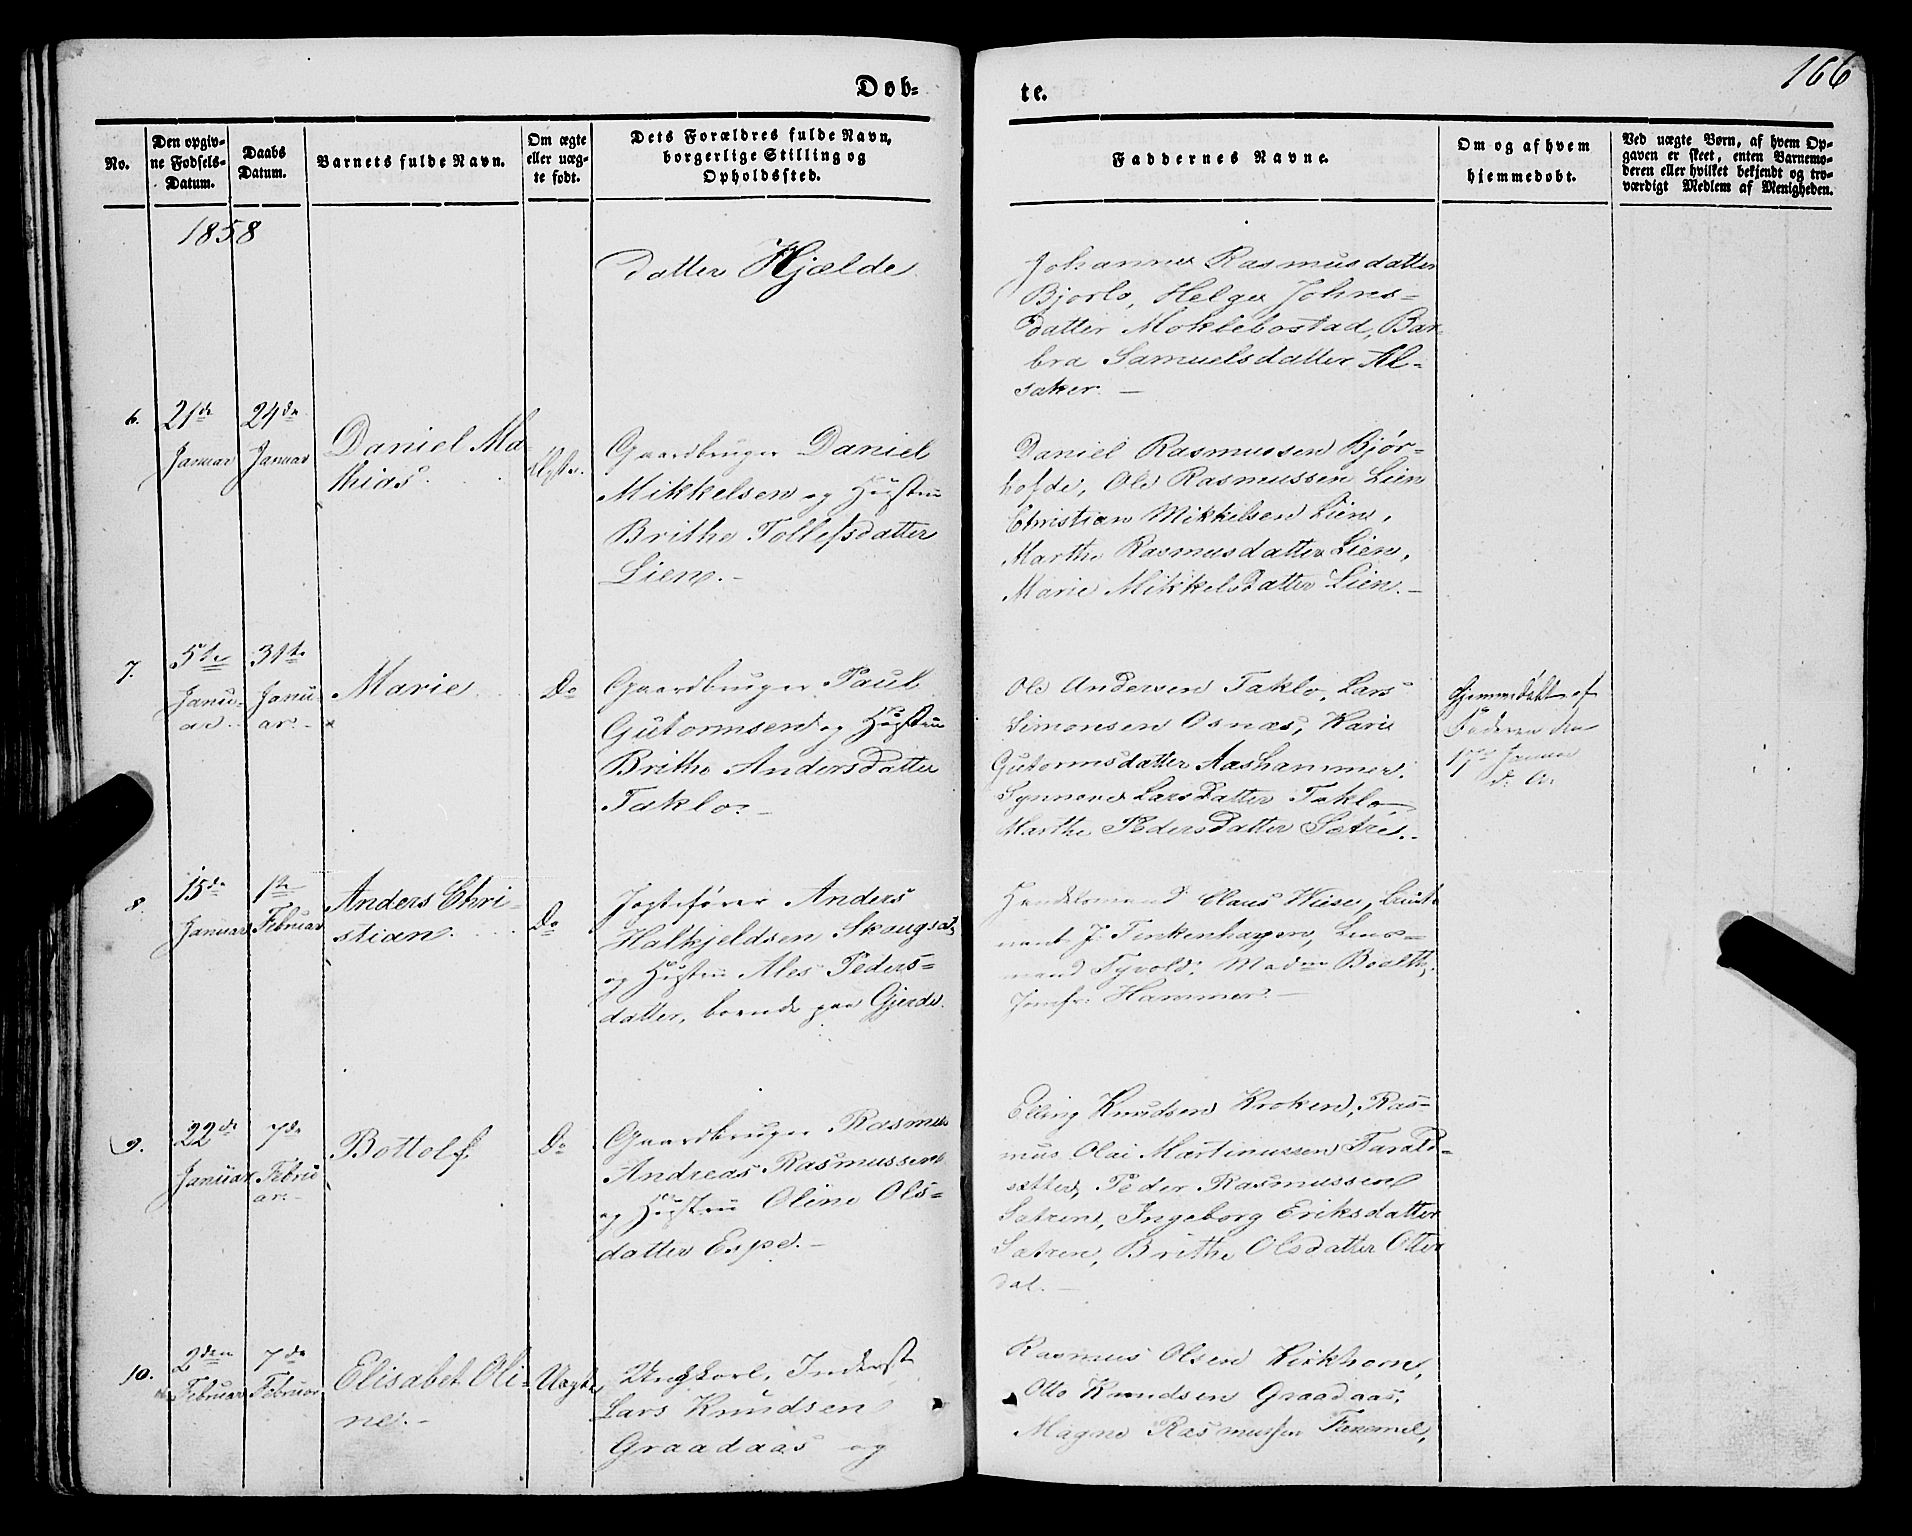 166
Døb-
te.
No.
Den opgiv-
ne Fødsels-
Datum.
Daabs
Datum.
Barnets fulde Navn.
Om ægte
eller uæg-
te født.
Dets Forældres fulde Navn,
borgerlige Stilling og
Opholdssted.
Faddernes Navne.
Om og af hvem
hjemmedøbt.
Ved uægte Børn, af hvem Op-
gaven er skeet, enten Barnemo-
deren eller hvilket bekjendt og tro-
værdigt Medlem af Menigheden.
1858
datter Hjælde
Johanne Rasmusdatter
Bjorlo, Helge Johns-
datter Moklebostad, Bar-
bra Samuelsdatter Al-
saker. —
6.
21de
Januar
24de
Januar
Daniel Ma
thias.
Ægte.
Gaardbruger Daniel
Mikkelsen og Hustru
Brithe Tollefsdatter
Lien. -
Daniel Rasmussen Bjør-
hofde, Ole Rasmussen Lien
Christian Mikkelsen Lien,
Marthe Rasmusdatter Lien,
Marie Mikkelsdatter Lien. -
7.
5te
Janu-
ar.
31te
Janu-
ar.
Marie
Do
Gaardbruger Paul
Gutormsen og Hustru
Brithe Andersdatter
Taklo. -
Ole Andersen Taklo, Lars
Simonsen Osnæs, Kari
Gutormsdatter Aashammer,
Synneve Larsdatter Taklo
Marthe Pedersdatter Sætre. -
Hjemmedøbt af
Faderen den
17de Januar
d. A.
8.
15de
Januar
1te
Februar
Anders Chri-
stian.
Do
Jagtefører Anders
Halkjeldsen Skougsat,
og Hustru Ales Peders-
datter, boende paa Gjerde.
Handelsmand Claus Wiese, Leut-
nant J. Finkenhagen, Lens-
mand Tyvold, Madm
Jomfr: Hammer. -
9.
22de
Januar
7de
Febru
ar.
Bottolf.
Do
Gaardbruger Rasmus
Andreas Rasmussen
og Hustru Oline Ols-
datter Espe. -
Elling Knudsen Kroken, Ras-
mus Olai Martinussen Tarald-
sætter, Peder Rasmussen
Satren, Ingeborg Eriksdatter
Satren, Brithe Olsdatter Otter
dal. -
10.
2den
Februar
7de
Februar
Elisabet Oli-
ne. -
Uægte
Ungkarl, Inderst
Lars Knudsen
Graadaas og
Rasmus Olsen Kirkhorn,
Otto Knudsen Graadaas,
Magne Rasmussen Fænemel,